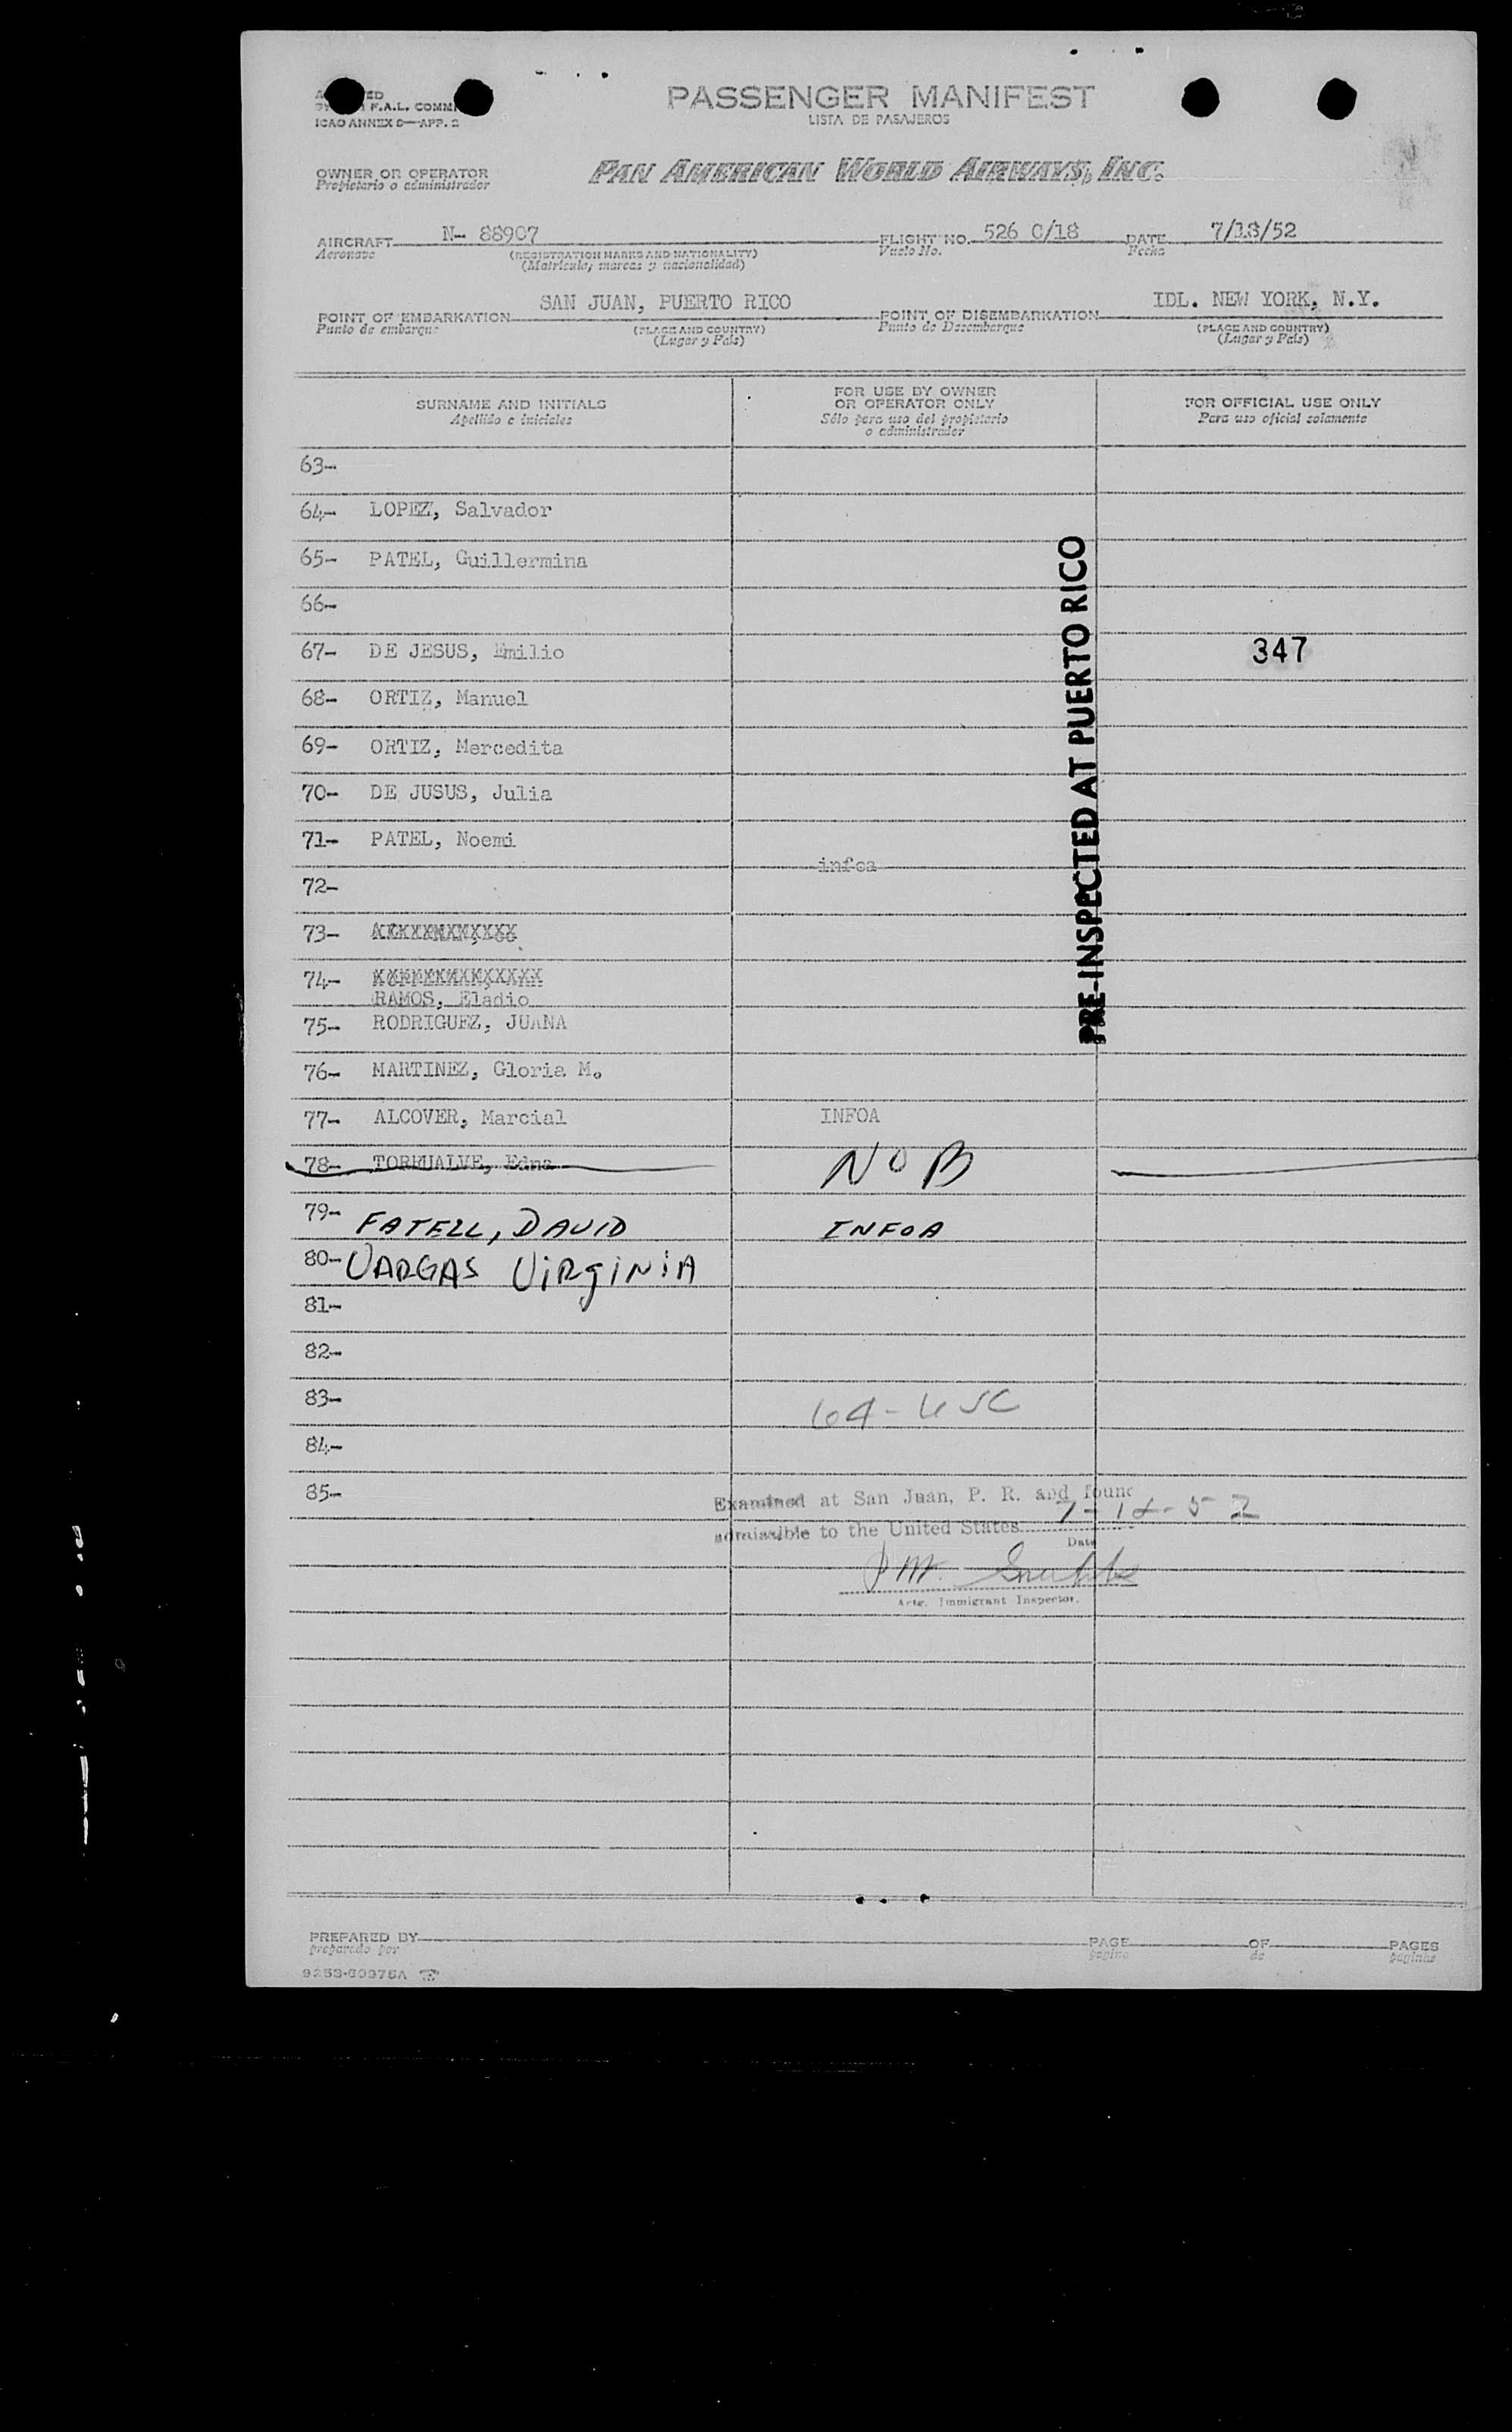 F.A.L. COMM
ICAO ANNEX 9—APP. 2
PASSENGER MANIFEST
LISTA DE PASAJEROS
OWNER OR OPERATOR
Propietario o administrador
PAN AMERICAN WORLD AIRWAYS, INC.
AIRCRAFT N- 88907 FLIGHT NO. 526 C/18 DATE 7/18/52
Aeronave (REGISTRATION MARKS AND NATIONALITY) Vuelo No. Fecha
(Matrícula, marcas y nacionalidad)
POINT OF EMBARKATION SAN JUAN, PUERTO RICO POINT OF DISEMBARKATION IDL. NEW YORK, N.Y.
Punto de embarque (PLACE AND COUNTRY) Punto de Desembarque (PLACE AND COUNTRY)
(Lugar y País) (Lugar y País)
SURNAME AND INITIALS
Apellido e iniciales
FOR USE BY OWNER
OR OPERATOR ONLY
Sólo para uso del propietario
o administrador
FOR OFFICIAL USE ONLY
Para uso oficial solamente
63-
64- LOPEZ, Salvador
65- PATEL, Guillermina
66-
67- DE JESUS, Emilio 347
68- ORTIZ, Manuel
69- ORTIZ, Mercedita
70- DE JUSUS, Julia
71- PATEL, Noemi
infoa
72-
73-
74-
RAMOS, Eladio
75- RODRIGUEZ, JUANA
76- MARTINEZ, Gloria M.
77- ALCOVER, Marcial INFOA
78- Edna NOB
79- FATELL, DAVID INFOA
80- VARGAS VIRGINIA
81-
82-
83- 64-USC
84-
85-
PRE-INSPECTED AT PUERTO RICO
Examined at San Juan, P. R. and found
admissible to the United States 7-18-52
Date
Actg. Immigrant Inspector.
PREPARED BY PAGE OF PAGES
preparado por pagina de paginas